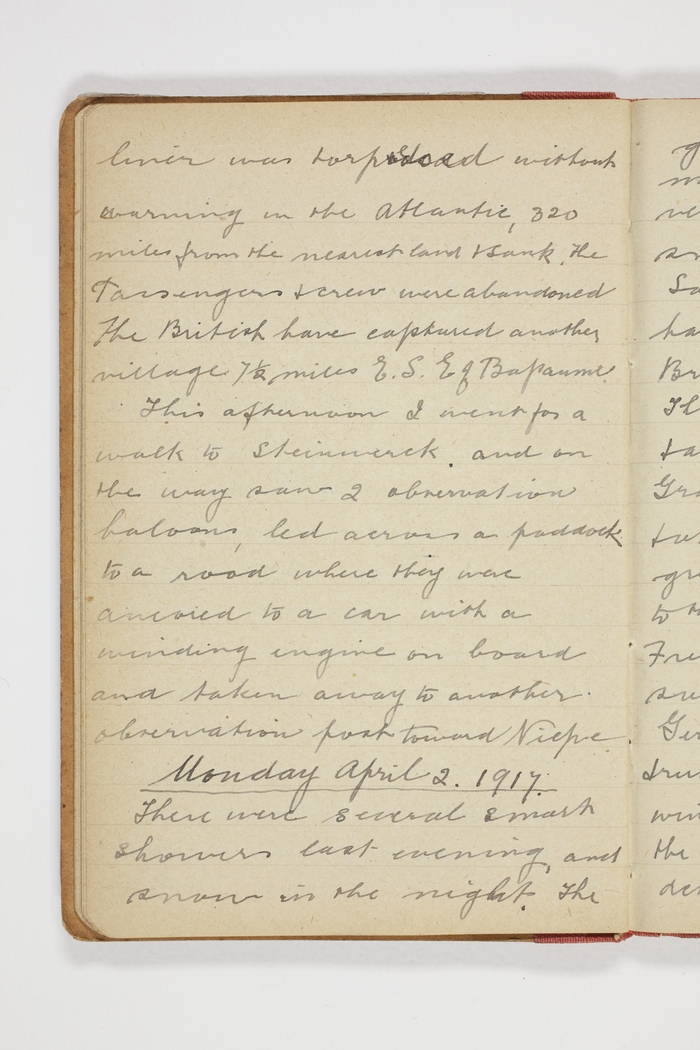 liner was torpedoed without
warning in the Atlantic, 320
miles from the nearest land & sank. The
Passengers & crew were abandoned
The British have captured another
village 7½ miles E.S.E of Bapaume.
This afternoon I went for a
walk to Steinwerck. and on
the way saw 2 observation
baloons, led across a paddock
to a road where they were
ancored to a car with a
winding engine on board
and taken away to another
observation post toward Niepe.
Monday April 2. 1917.
There were several smart
showers last evening, and
snow in the night. The
g
m
ve
sn
So
ha
Br
Th
ta
Gro
to
gr
to th
Fre
su
Ger
tru
win
the
de